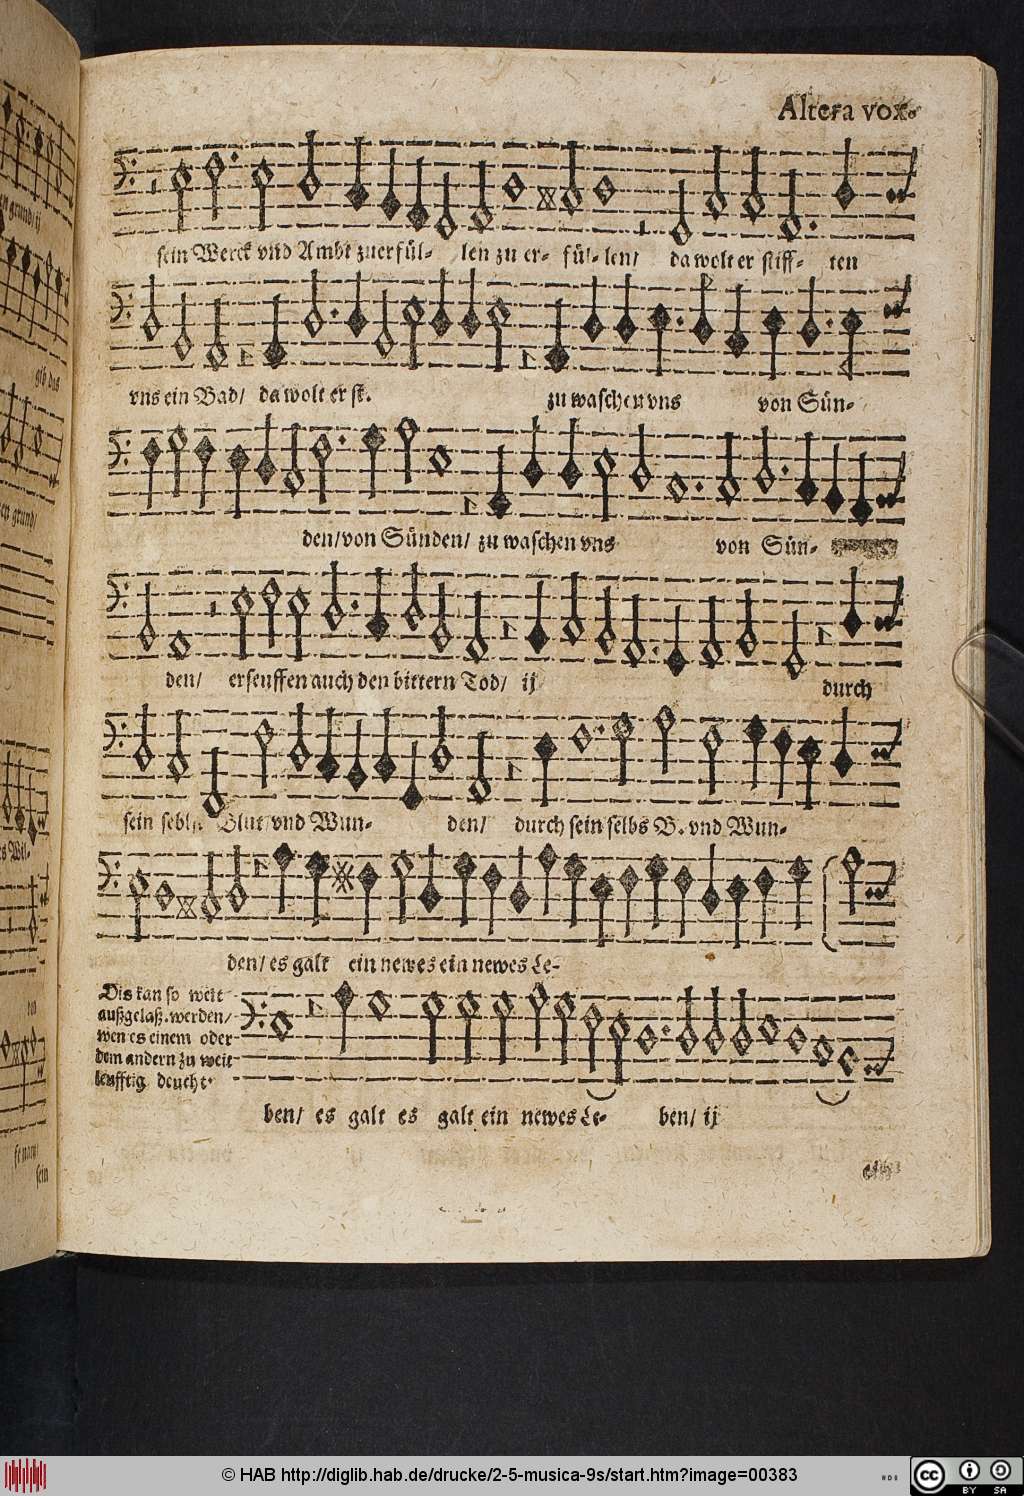 Altera vox.
sein Werck vnd Ambt zuerfül- len zu er- fül- len/ da wolt er stiff- ten
vns ein Bad/ da wolt er st. zu waschen vns von Sün-
den/ von Sünden/ zu waschen vns von Sün-
den/ erseuffen auch den bittern Tod/ ij durch
sein Blut/ vnd Wun- den/ durch sein selbs B. vnd Wun-
den/ es galt ein newes ein newes Le-
Dis kan so weit
außgelaß. werden/
wen es einem oder
dem andern zu weit
leufftig deucht.
ben/ es galt es galt ein newes Le- ben/ ij
en grund/ ij
gib das
en grund/
sein
© HAB http://diglib.hab.de/drucke/2-5-musica-9s/start.htm?image=00383
cc BY SA